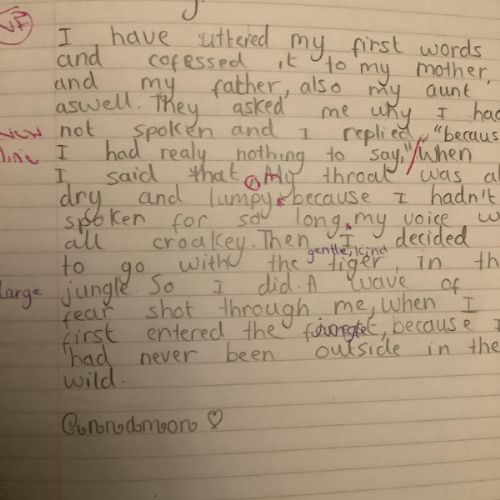 I have uttered my first words
and cofessed it to my mother,
and my father, also my aunt
aswell. They asked me why I had
not spoken and I replied, "becaus
New line
I had realy nothing to say," When
I said that my throat was al
dry and lumpy, because I hadn't
spoken for so long, my voice w
all croakey. Then I decided
gentle, kind
to go with the tiger, in th
large
jungle. So I did. A wave of
fear shot through me, when I
first entered the jungle, because I
had never been outside in the
wild.